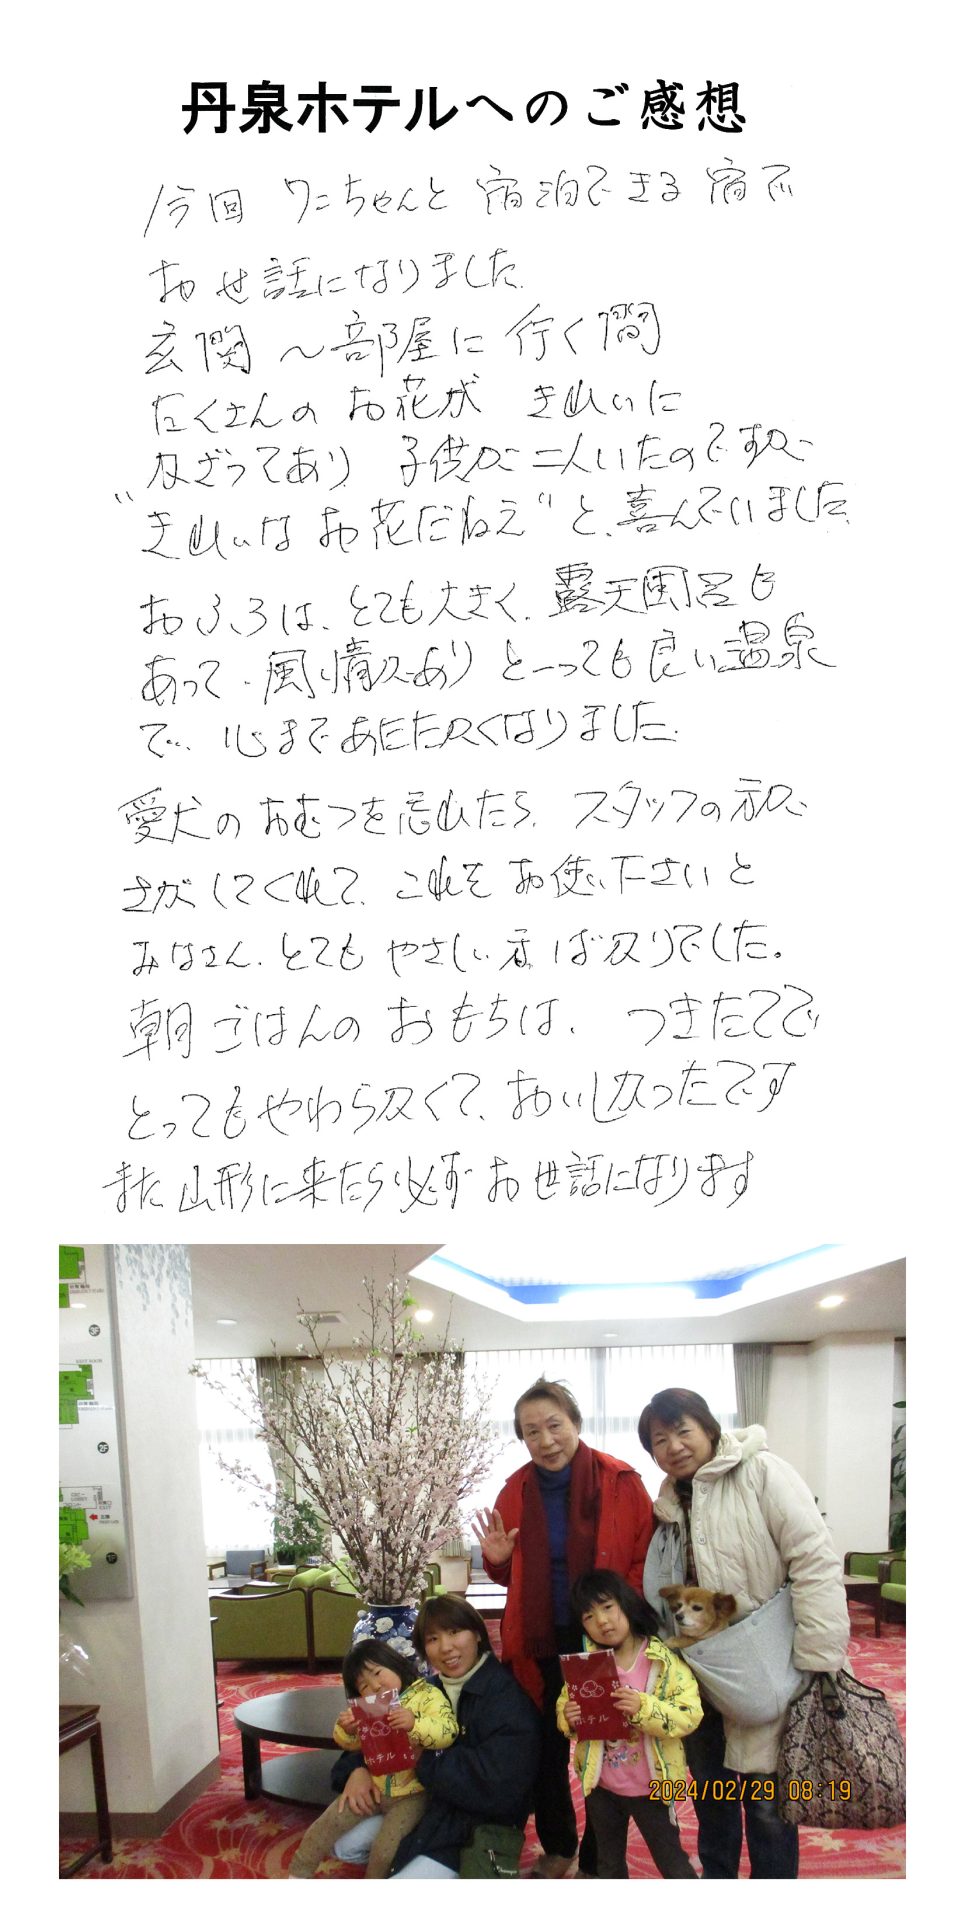 丹泉ホテルへのご感想
今回 ワンちゃんと 宿泊できる 宿で
お世話になりました。
玄関〜部屋に 行く間
たくさんの お花が きれいに
かざってあり 子供が二人いたのですが
“きれいな お花だねえ”と、喜んでいました。
おふろは、とても大きく、露天風呂も
あって、風情があり とーっても良い温泉
で、心まであたたかくなりました。
愛犬の おむつを忘れたら、スタッフの方が
さがしてくれて、これを お使い下さいと
みなさん、とても やさしい方ばかりでした。
朝ごはんの おもちは、つきたてで
とってもやわらかくて、おいしかったです
また 山形に来たら必ず お世話になります
3F
2F
1F
ホテル
ホテル
2024/02/29 08:19